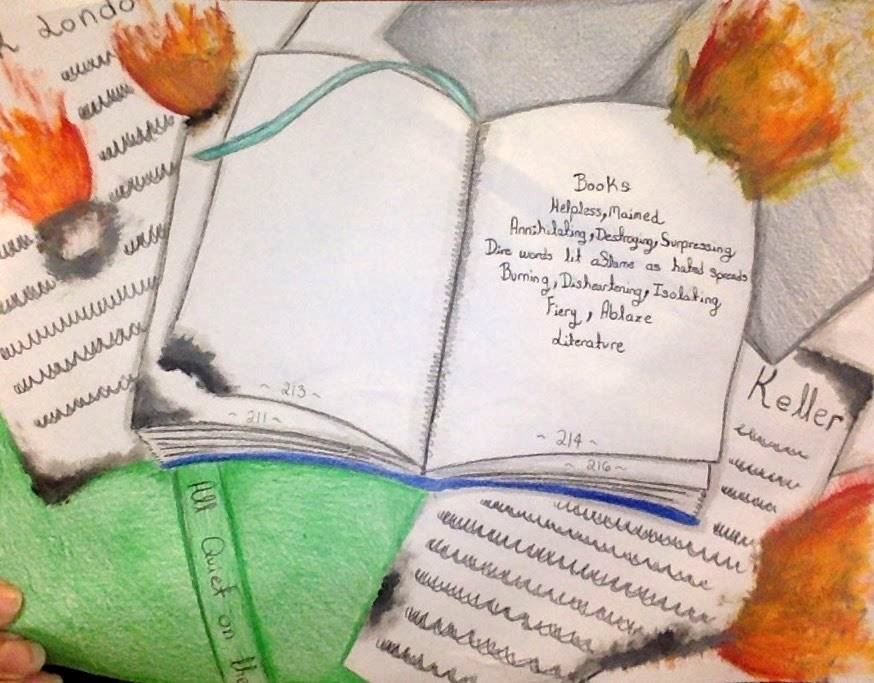 k Londo
Books
Helpless, Maimed
Annihilating, Destroying, Surpressing
Dire words lit aflame as hated spreads
Burning, Disheartening, Isolating
Fiery, Ablaze
Literature
~ 213 ~
~ 211 ~
~ 214 ~
~ 216 ~
Keller
All Quiet on the